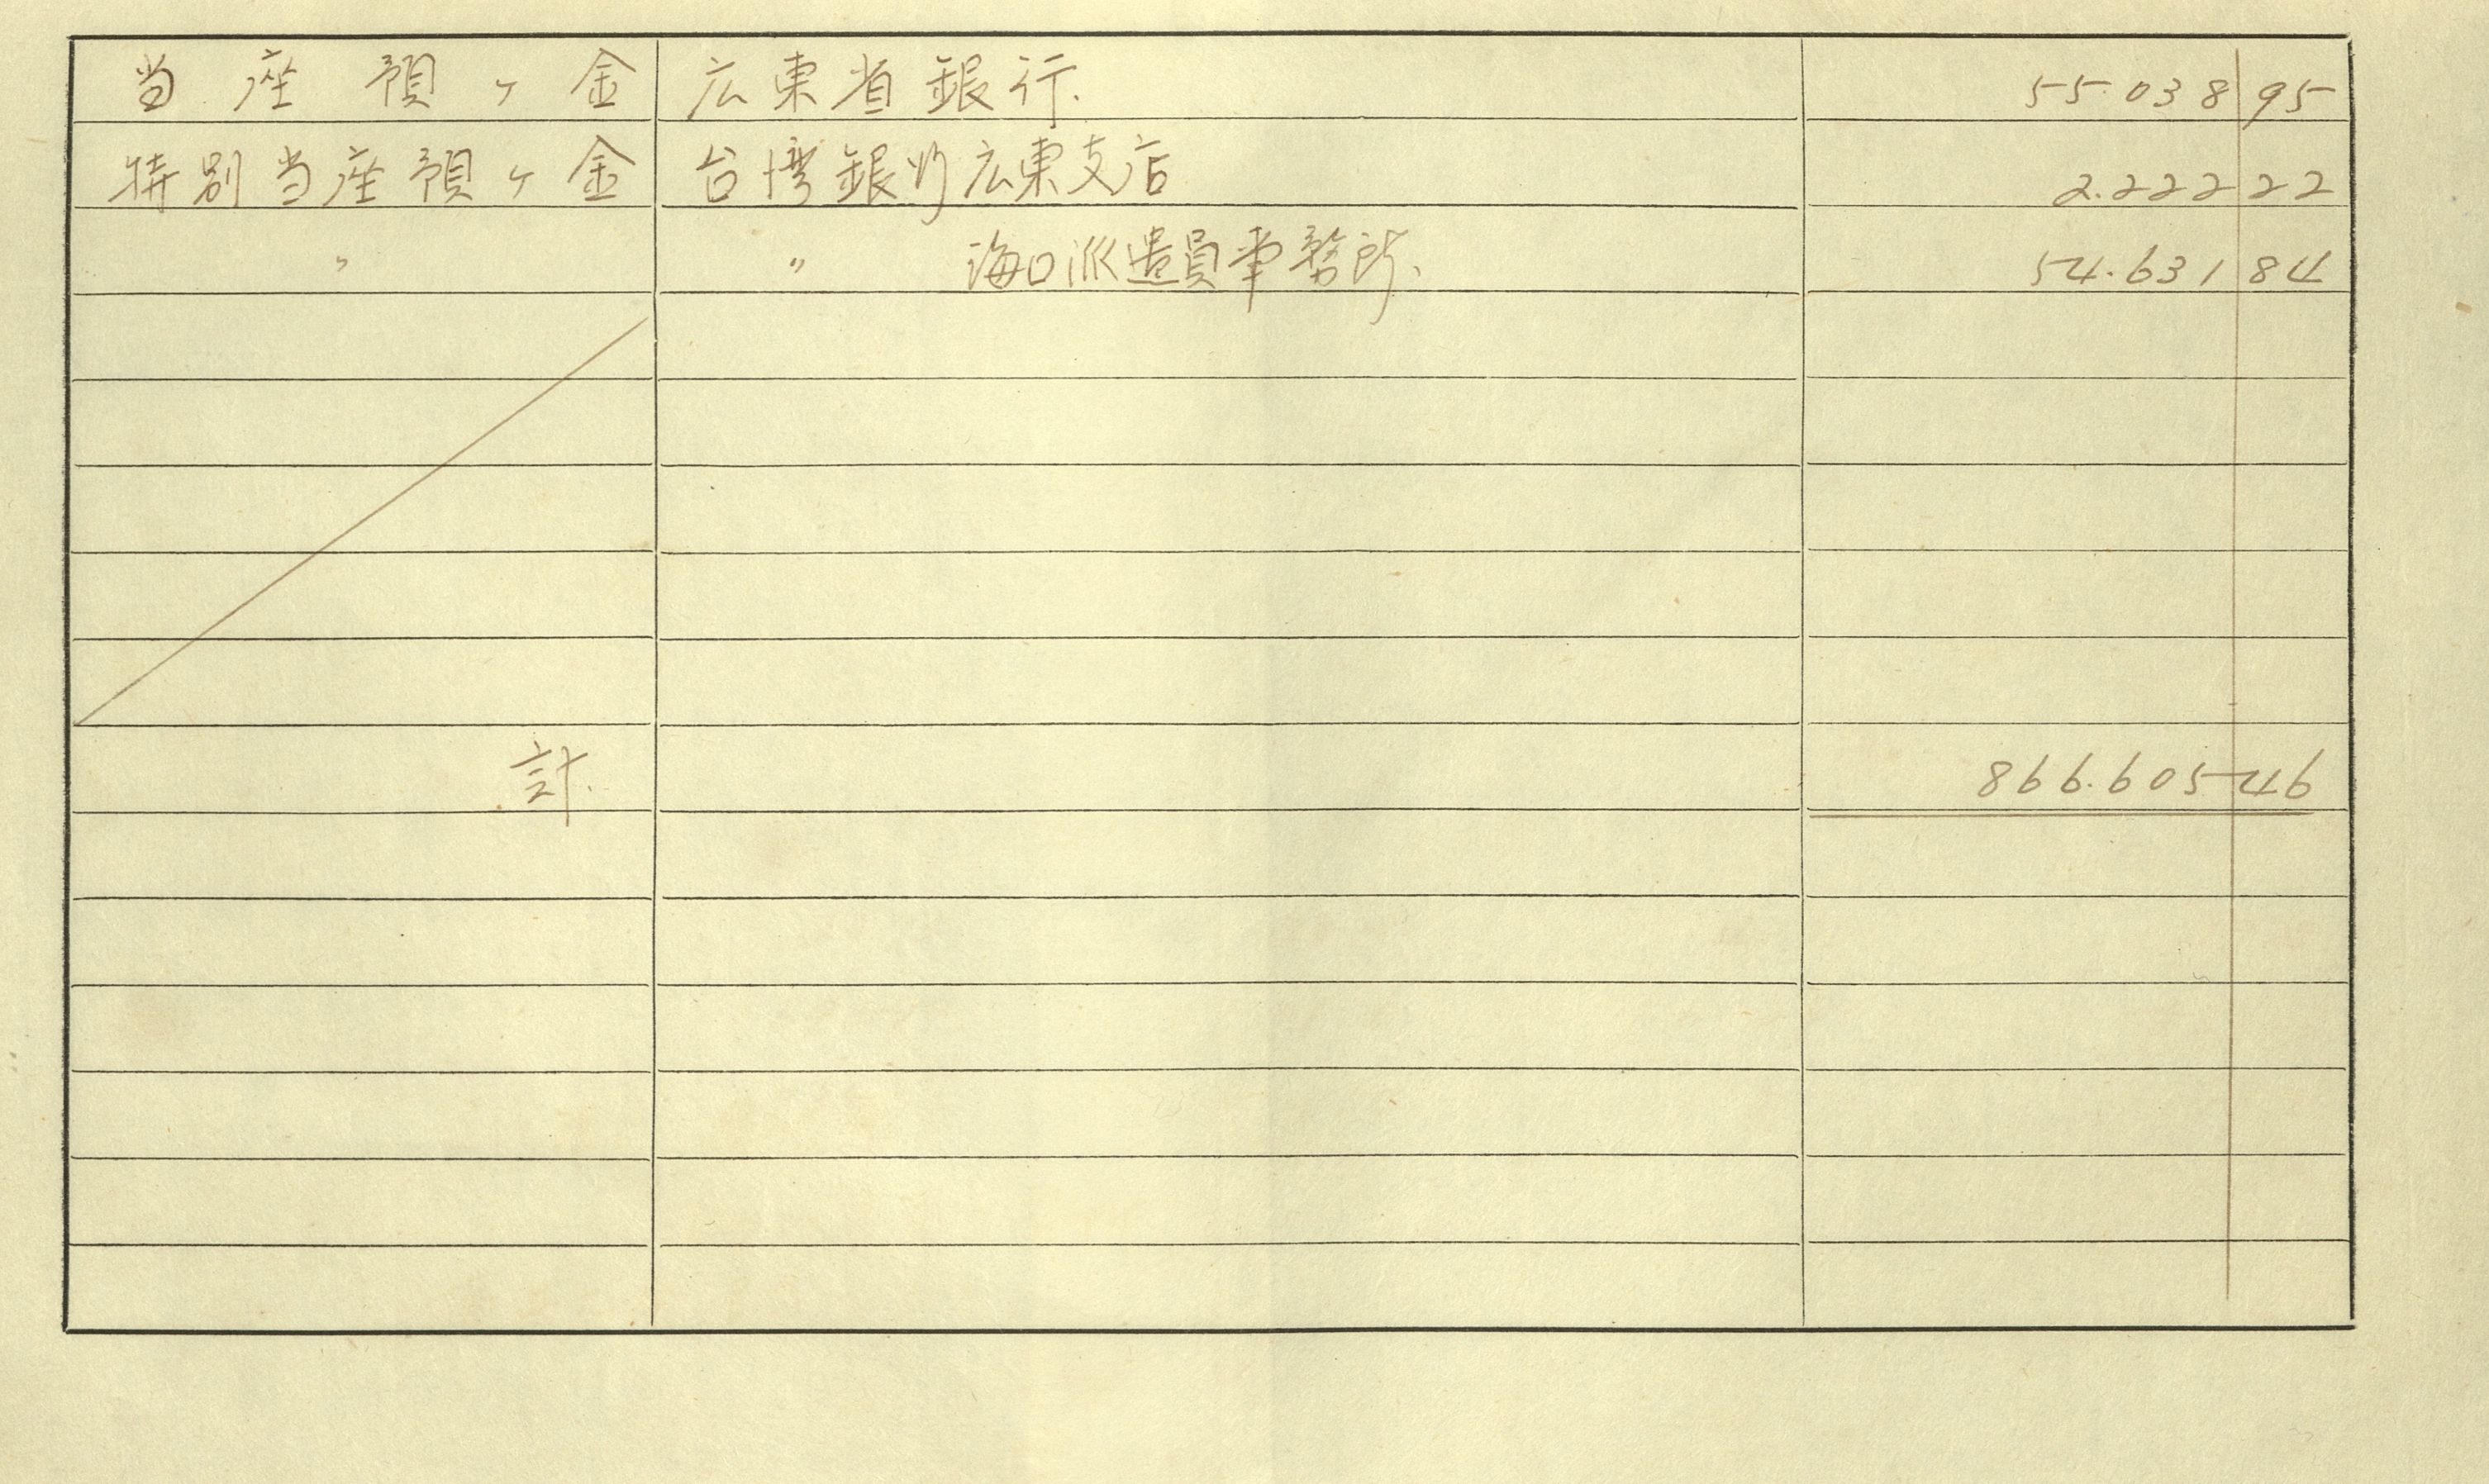 当座預ケ金 広東省銀行. 55.038 95
特別当座預ケ金 台湾銀行広東支店 2.222 22
〃 〃 海口派遣員事務所、 54.631 84
計. 866.605 46